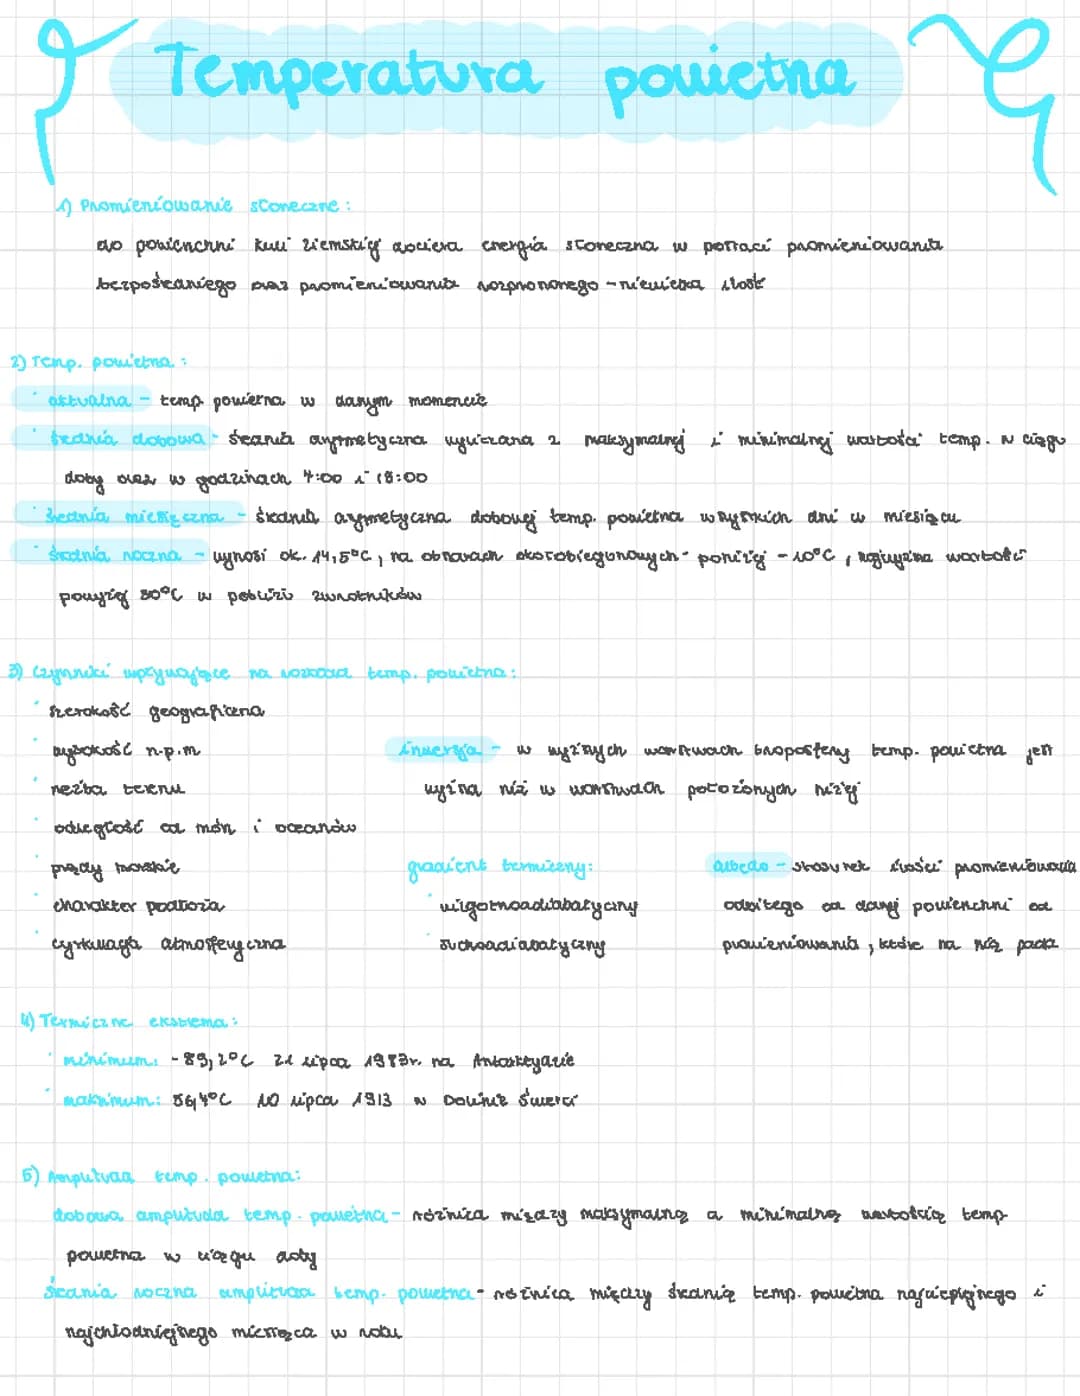 Temperatura powietrza
1) Promieniowanie słoneczne:
do powierzchni kuli ziemskiej dociera energia słoneczna w postaci promieniowania
bezpośredniego oraz promieniowania rozproszonego - niewielka ilość
2) Temp. powietrza:
· aktualna - temp powietrza w danym momencie
· średnia dobowa - średnia arytmetyczna wyliczana z maksymalnej i minimalnej wartości temp. w ciągu
doby oraz w godzinach 7:00 i 18:00
· średnia miesięczna - średnia arytmetyczna dobowej temp. powietrza wszystkich dni w miesiącu
· średnia roczna - wynosi ok. 14,5°C, na obszarach okołobiegunowych - poniżej -10°C, najwyższa wartość
powyżej 30°C w pobliżu zwrotników
3) Czynniki wpływające na rozkład temp. powietrza:
· szerokość geograficzna
· wysokość n.p.m
inwersja - w wyższych warstwach troposfery temp. powietrza jest
· rzeźba terenu
wyższa niż w warstwach położonych niżej
· odległość od mórz i oceanów
· prądy morskie
gradient termiczny:
albedo - stosunek ilości promieniowania
· charakter podłoża
· wilgotnoadiabatyczny
odbitego od danej powierzchni od
· cyrkulacja atmosferyczna
· suchoadiabatyczny
promieniowania, które na nią pada
4) Termiczne ekstrema:
· minimum: -89,2°C 21 lipca 1983r. na Antarktydzie
· maksimum: 56,4°C 10 lipca 1913 w Dolinie Śmierci
5) Amplituda temp. powietrza:
dobowa amplituda temp. powietrza - różnica między maksymalną a minimalną wartością temp.
powietrza w ciągu doby
średnia roczna amplituda temp. powietrza - różnica między średnią temp. powietrza najcieplejszego i
najchłodniejszego miesiąca w roku